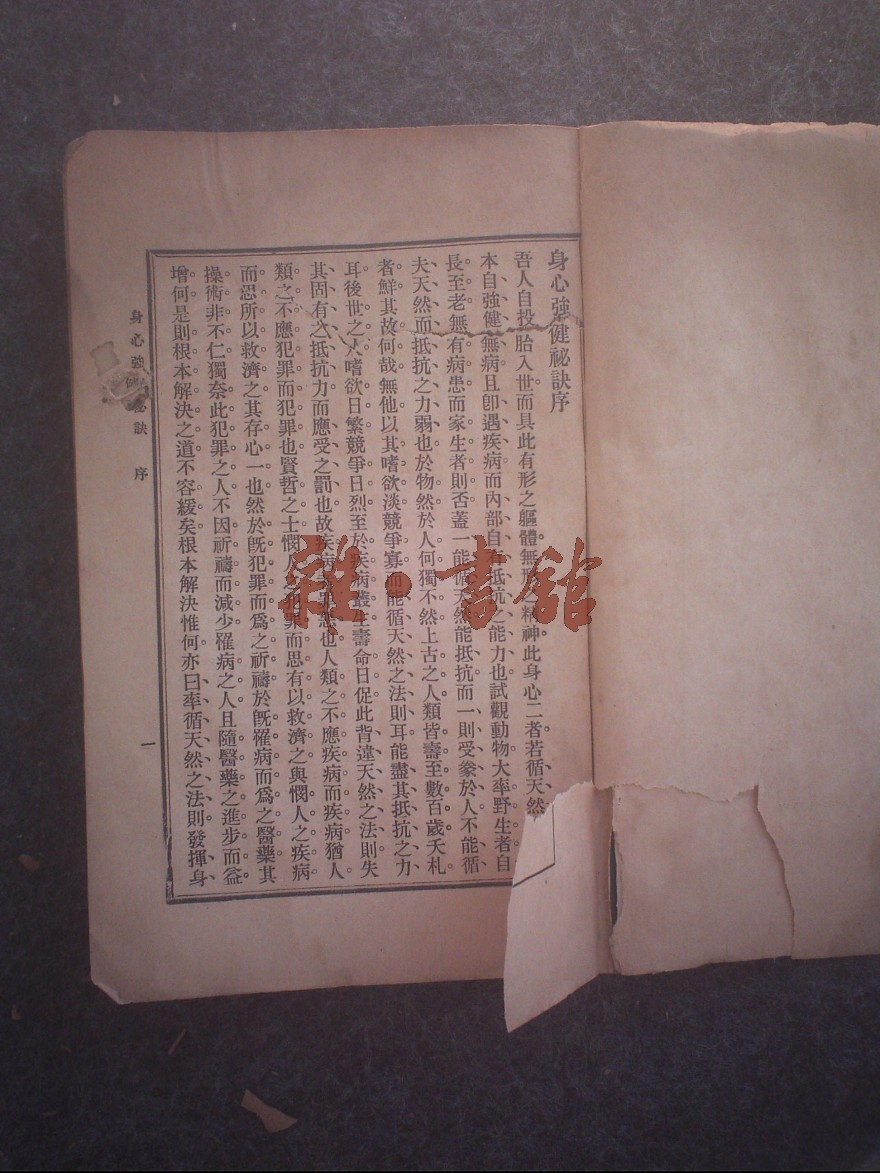 身心強健祕訣序
吾人自投胎入世而具此有形之軀體無形之精神此身心二者若循天然
本自強健無病且卽遇疾病而內部自有抵抗之能力也試觀動物大率野生者自
長至老無有病患而家生者則否蓋一能循天然能抵抗而一則受豢於人不能循
夫天然而抵抗之力弱也於物然於人何獨不然上古之人類皆壽至數百歲夭札
者鮮其故何哉無他以其嗜欲淡競爭寡而能循天然之法則耳能盡其抵抗之力
耳後世之人嗜欲日繁競爭日烈至於疾病叢生壽命日促此背違天然之法則失
其固有之抵抗力而應受之罰也故疾病罪惡也人類之不應疾病而疾病猶人
類之不應犯罪而犯罪也賢哲之士憫人之犯罪而思有以救濟之與憫人之疾病
而思所以救濟之其存心一也然於旣犯罪而爲之祈禱於旣罹病而爲之醫藥其
操術非不仁獨奈此犯罪之人不因祈禱而減少罹病之人且隨醫藥之進步而益
增何是則根本解決之道不容緩矣根本解決惟何亦曰率循天然之法則發揮身
身心強 訣 序
一
雜·書館